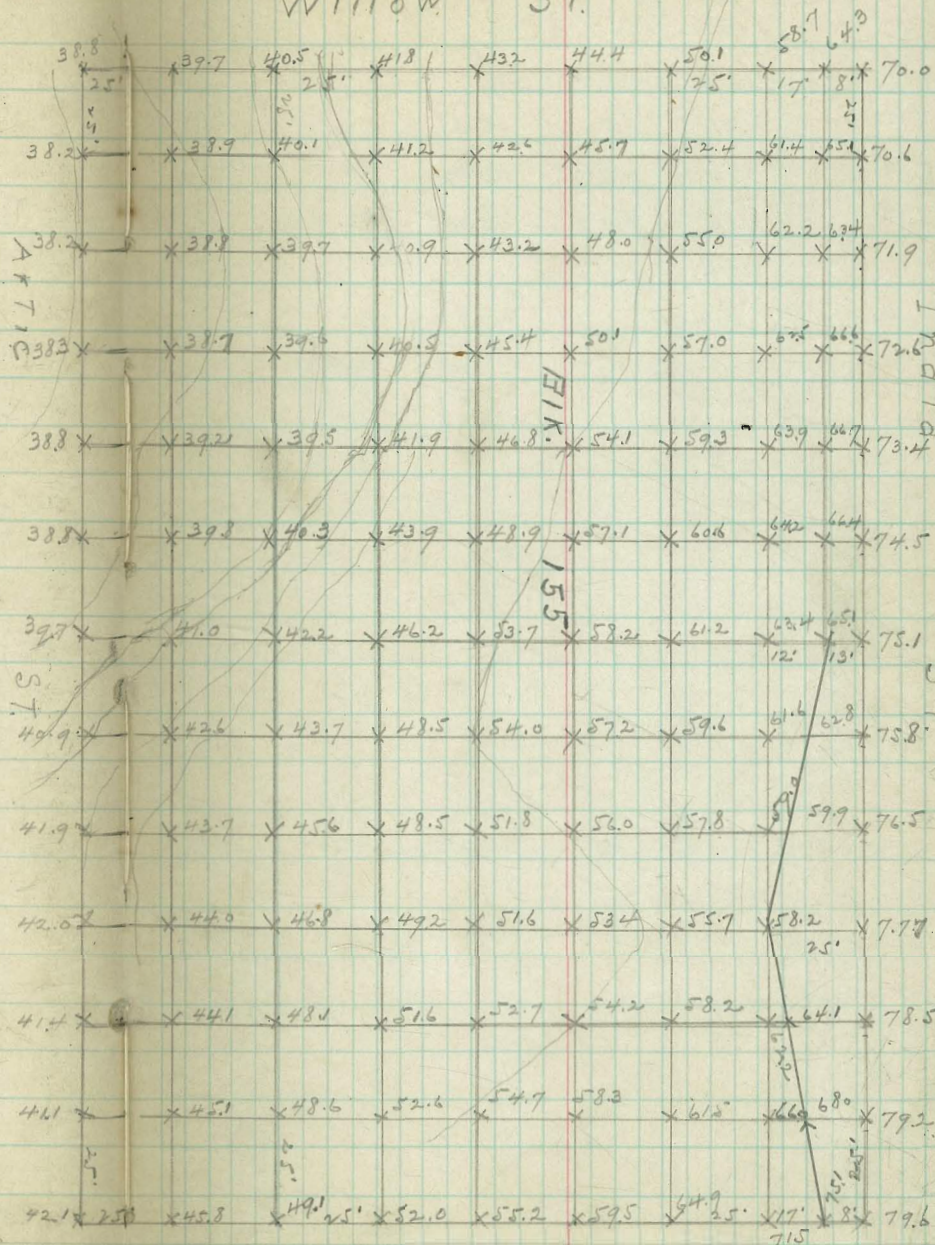 Willow St.
38.8 39.7 40.5 41.8 43.2 44.4 50.1 58.7 64.3 70.0
25' 25' 25' 17' 8'
25' 25' 25'
38.2 38.9 40.1 41.2 42.6 45.7 52.4 61.4 65.1 70.6
38.2 38.8 39.7 40.9 43.2 48.0 55.0 62.2 63.4 71.9
38.3 38.7 39.6 40.5 45.4 50.1 57.0 62.5 66.6 72.6
Blk. 155
38.8 39.2 39.5 41.9 46.8 54.1 59.3 63.9 66.7 73.4
38.8 39.8 40.3 43.9 48.9 57.1 60.6 64.2 66.4 74.5
39.7 41.0 42.2 46.2 53.7 58.2 61.2 63.4 65.1 75.1
12' 13'
ST.
40.9 42.6 43.7 48.5 54.0 57.2 59.6 61.6 62.8 75.8
41.9 43.7 45.6 48.5 51.8 56.0 57.8 59.9 76.5
42.0 44.0 46.8 49.2 51.6 53.4 55.7 58.2 77.7
25'
41.4 44.1 48.1 51.6 52.7 54.2 58.2 64.1 78.5
41.1 45.1 48.6 52.6 54.7 58.3 61.5 66.9 68.0 79.2
25' 25' 25'
42.1 25' 45.8 49.1 25' 52.0 55.2 59.5 64.9 25' 17' 75.1 8' 79.6
71.5